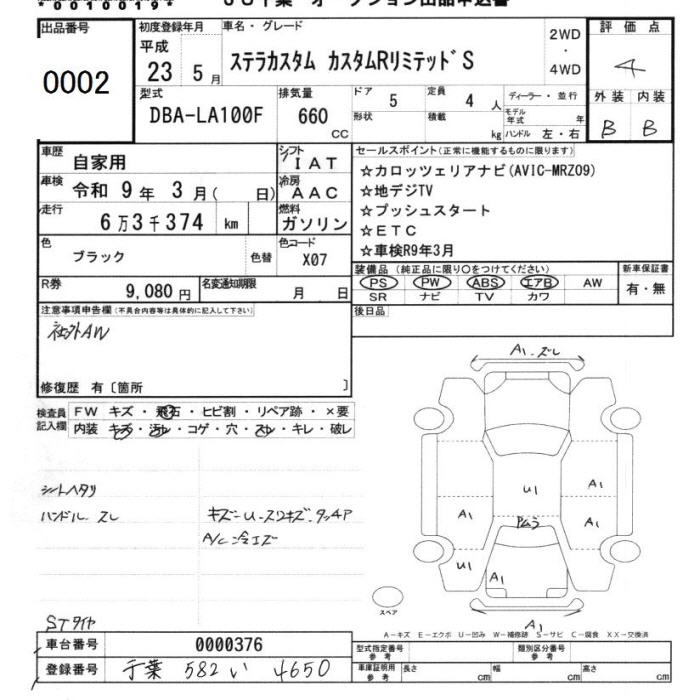 出品番号
0002
初度登録年月
平成
23 5月
車名・グレード
ステラカスタム カスタムRリミテッド S
2WD
・
4WD
評価点
4
型式
DBA-LA100F
排気量
660
CC
ドア
5
形状
定員
4 人
積載
kg
ディーラー・並行
モデル年式 年
ハンドル 左・右
外装 内装
B B
車歴
自家用
シフト
IAT
車検
令和 9年 3月( 日)
冷房
AAC
走行
6万3千374 km
燃料
ガソリン
色
ブラック
色替
色コード
X07
R券
9,080円
名変通知期限
月 日
セールスポイント(正常に機能するものに限ります)
☆カロッツェリアナビ(AVIC-MRZ09)
☆地デジTV
☆プッシュスタート
☆ETC
☆車検R9年3月
装備品(純正品に限り○をつけてください)
PS PW ABS エアB AW
SR ナビ TV カワ
新車保証書
有・無
後日品
注意事項申告欄(不具合内容等は具体的に記入して下さい)
社外AW
修復歴 有〔箇所 〕
検査員
記入欄
FW キズ・飛石・ヒビ割・リペア跡・×要
内装 キズ・汚レ・コゲ・穴・スレ・キレ・破レ
シートヘタリ
ハンドル スレ
キズ-U-スリキズ-タッチP
A/C冷エズ
STタイヤ
A1.ズレ
U1
A1
A1
A1
U1
A1
A1
スペア
A-キズ E-エクボ U-凹み W-補修跡 S-サビ C-腐食 XX-交換済
車台番号
0000376
登録番号
千葉 582 い 4650
型式指定番号
参考
類別区分番号
参考
車庫証明用
参考
長さ cm
幅 cm
高さ cm